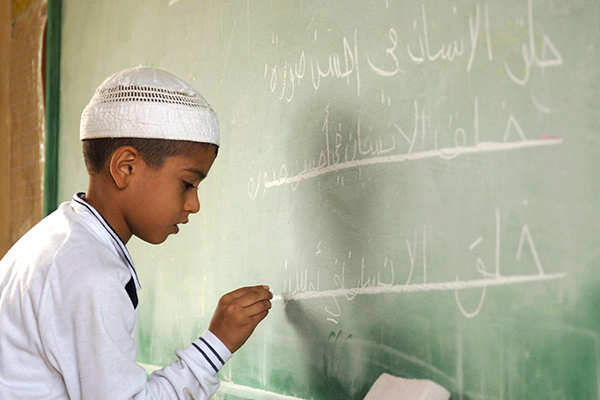 خلق الانسان في احسن صورة
خلق الانسان في أحسن صوره
خلق الانسان في أحسن